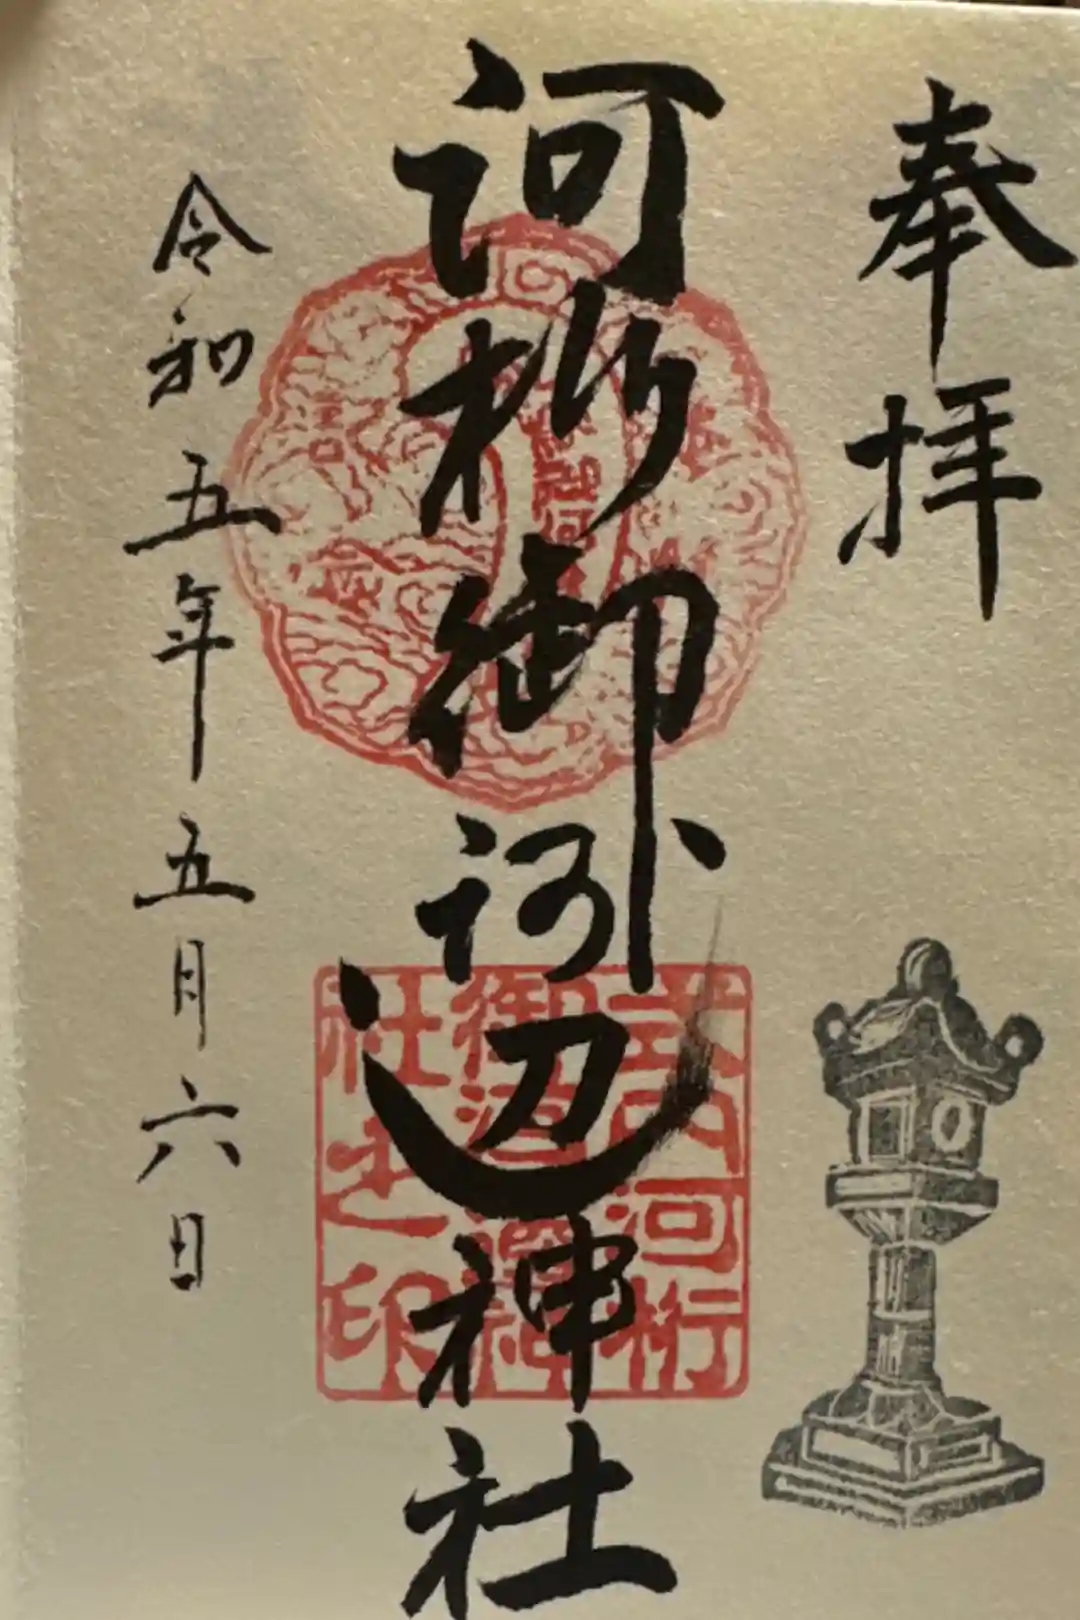 奉拝
河桁御河辺神社
令和五年五月六日
式内河桁
御河邊神
社之印